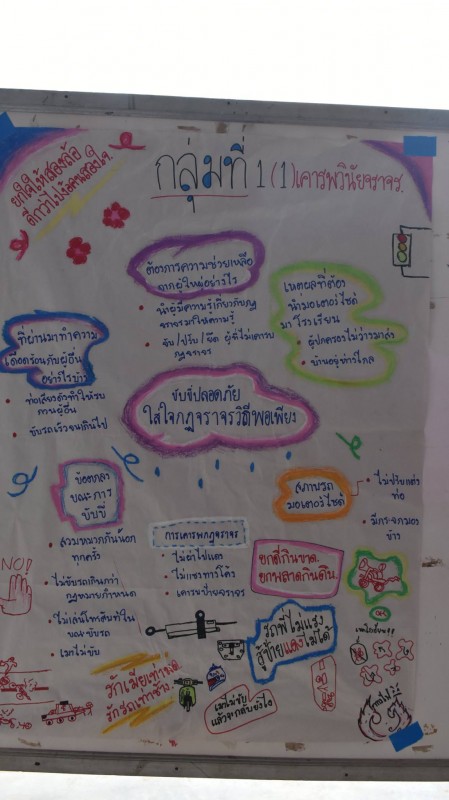 ยกใจให้สองล้อ
ดีกว่าไป
กลุ่มที่ 1 (1) เคารพวินัยจราจร.
ต้องการความช่วยเหลือ
จากผู้ใหญ่อย่างไร
• นำผู้มีความรู้เกี่ยวกับกฎ
จราจรมาให้ความรู้
• จับ/ปรับ/ยึด ผู้ที่ไม่เคารพ
กฎจราจร
เหตุผลที่ต้อง
นำมอเตอร์ไซต์
มาโรงเรียน
• ผู้ปกครองไม่ว่างมาส่ง
• บ้านอยู่ห่างไกล
ที่ผ่านมาทำความ
เดือดร้อนกับผู้อื่น
อย่างไรบ้าง
• ท่อเสียงดังทำให้รบ
กวนผู้อื่น
• ขับรถเร็วจนเกินไป
ขับขี่ปลอดภัย
ใส่ใจกฎจราจรวิถีพอเพียง
ข้อตกลง
ขณะการ
ขับขี่
• สวมหมวกกันน็อก
ทุกครั้ง
• ไม่ขับรถเกินกว่า
กฎหมายกำหนด
• ไม่เล่นโทรศัพท์ใน
ขณะขับรถ
• เมาไม่ขับ
การเคารพกฎจราจร
• ไม่ฝ่าไฟแดง
• ไม่แซงทางโค้ง
• เคารพป้ายจราจร
สภาพรถ
มอเตอร์ไซต์
• ไม่ปรับแต่ง
ท่อ
• มีกระจกมอง
ข้าง
ยกดีกินขาด.
ยกพลาดกินดิน.
NO!
รถพี่ไม่แรง
แซงไม่ได้
รักเมียเท่า
รักรถเท่า
เมาไม่ขับ
แล้วจะกลับยังไง